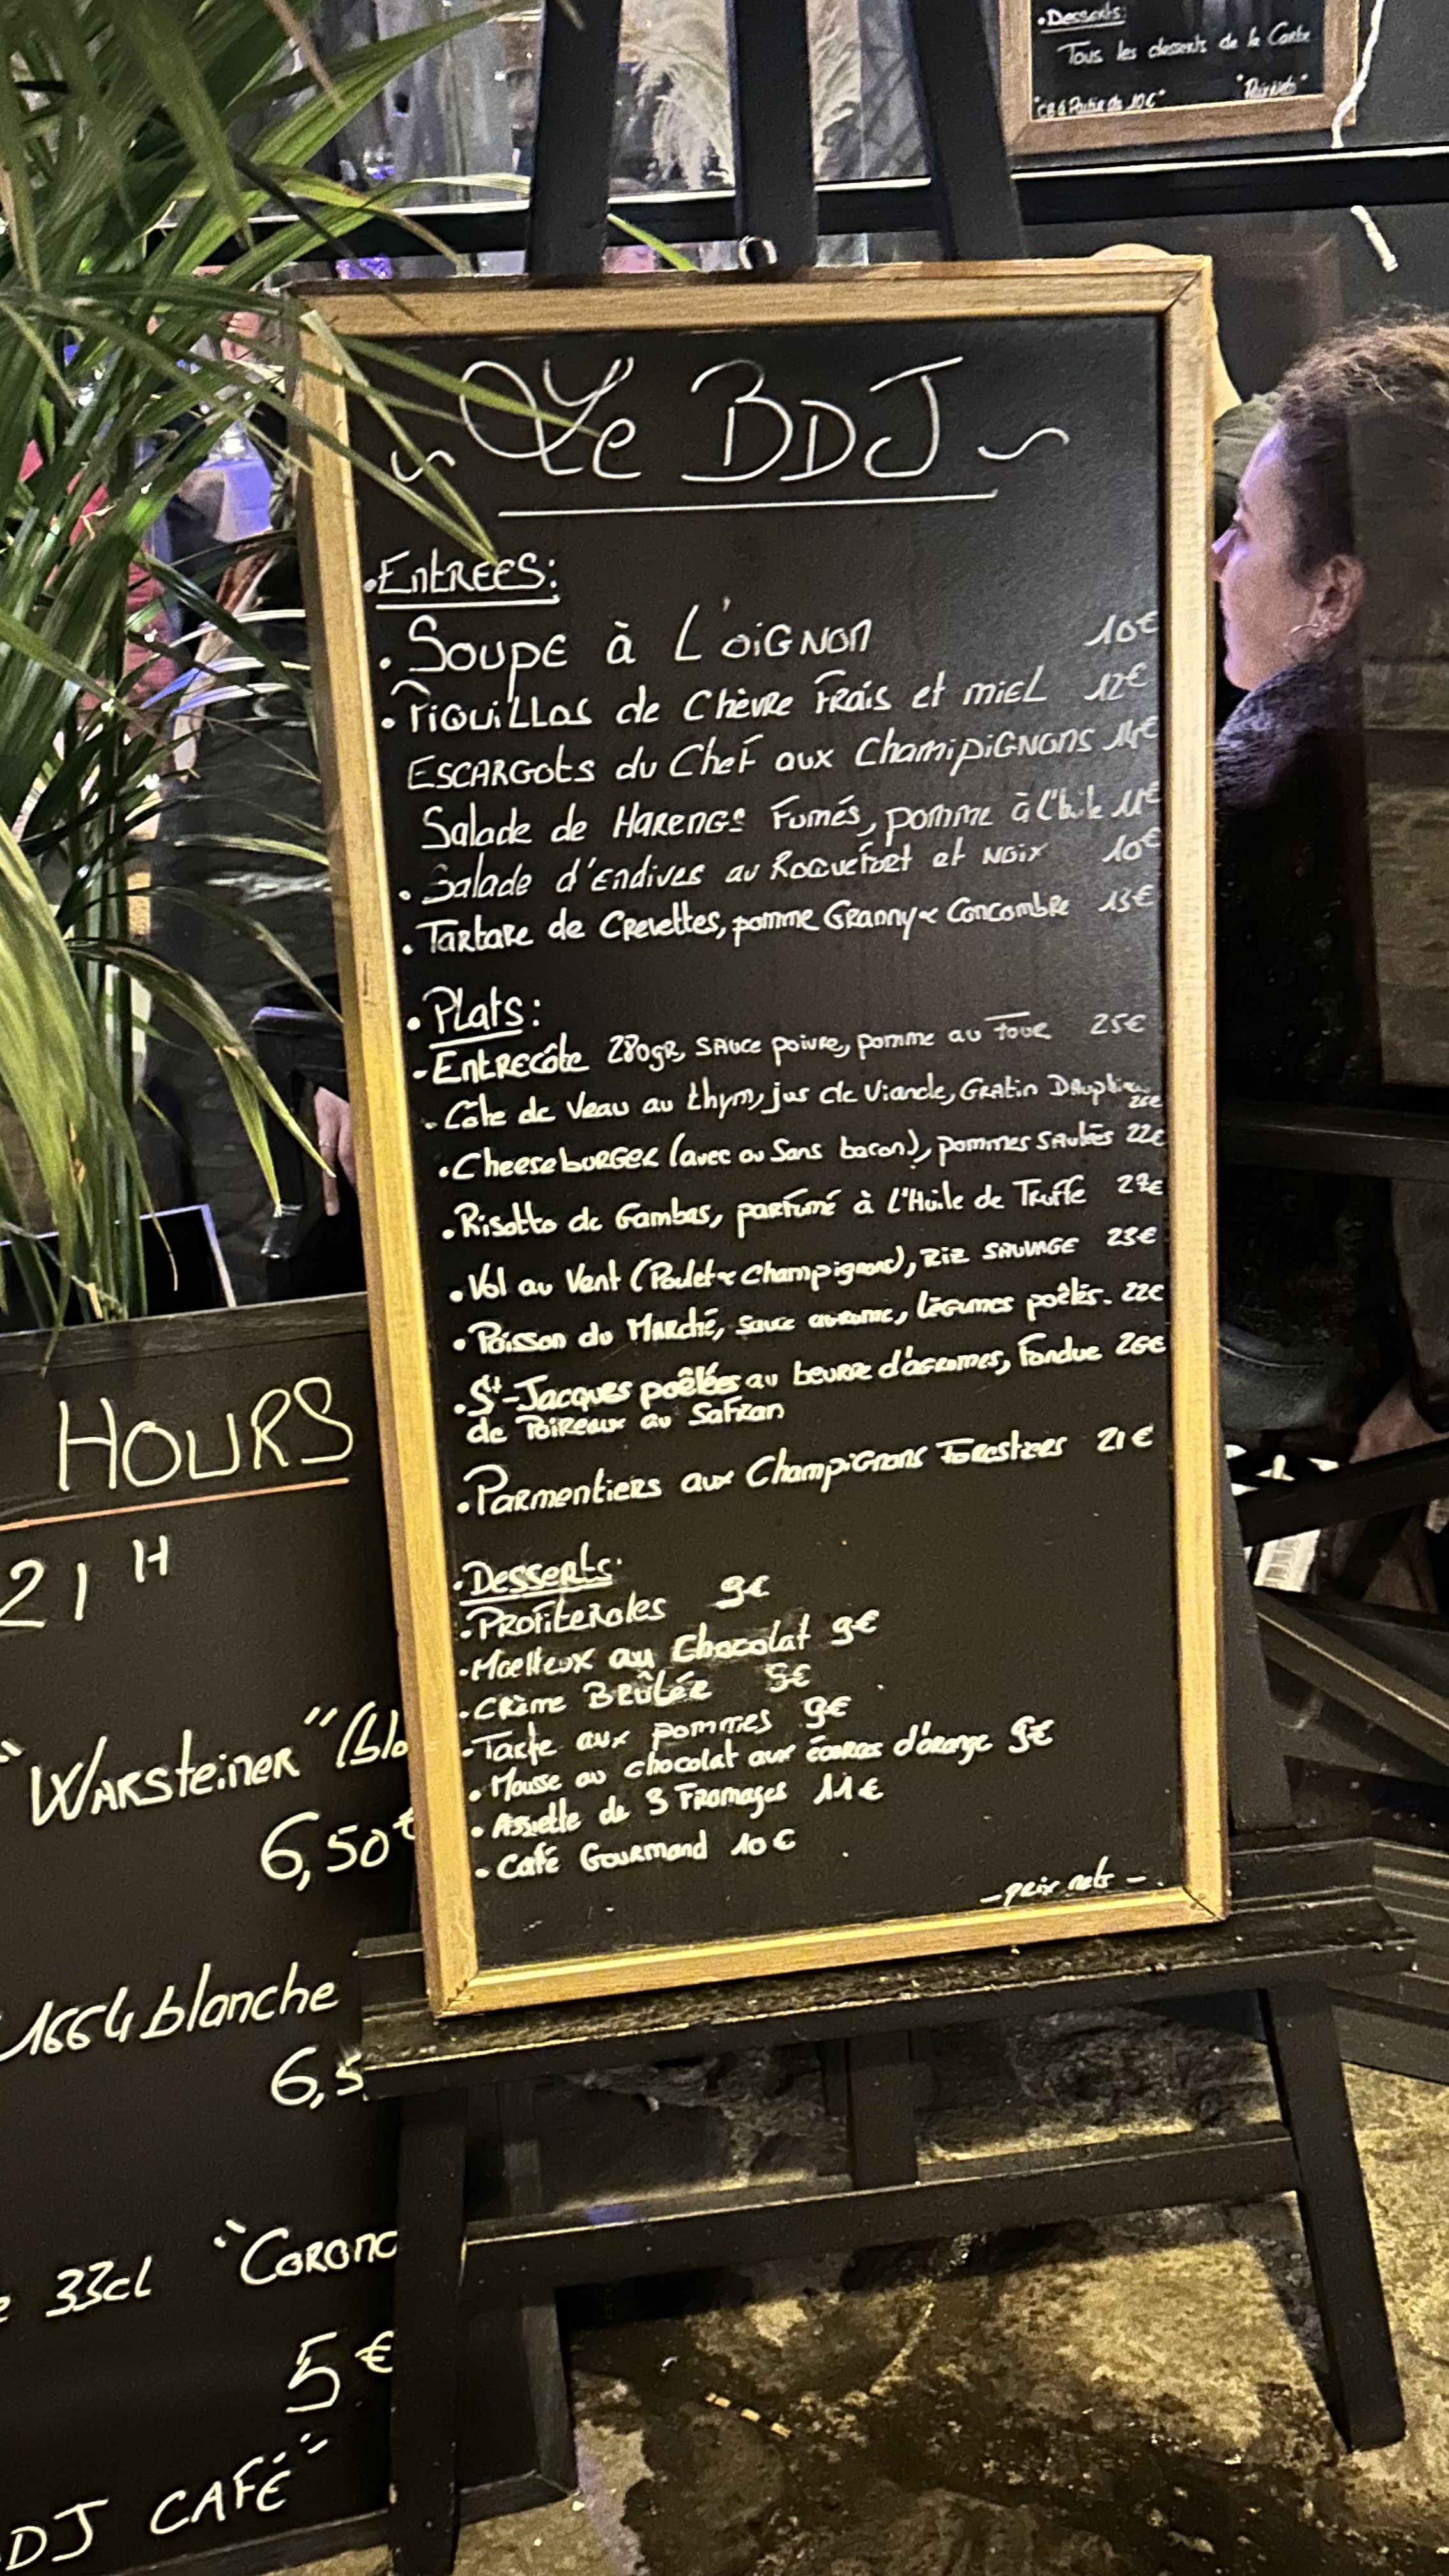 • Desserts:
Tous les desserts de la Carte
"CB à Partir de 10€"
~ Le BDJ ~
• ENTREES:
• Soupe à L'oiGNON 10€
• PiQuiLLos de Chèvre Frais et miEL 12€
ESCARGots du Chef aux ChamipiGNons 14€
Salade de HARENGs Fumés, pomme à l'huile 11€
• Salade d'Endives au Roquefort et Noix 10€
• Tartare de Crevettes, pomme Granny & Concombre 13€
• Plats:
- Entrecôte 280gr, sauce poivre, pomme au Four 25€
- Côte de Veau au thym, jus de Viande, Gratin Dauphin 26€
• Cheeseburger (avec ou Sans bacon), pommes sautées 22€
• Risotto de Gambas, parfumé à l'Huile de Truffe
• Vol au Vent (Poulet & Champignons), Riz SAUVAGE 23€
• Poisson du Marché, sauce légumes poêlés. 22€
• St-Jacques poêlées au beurre d'agrumes, Fondue 26€
de Poireaux au Safran
• Parmentiers aux Champignons Forestiers 21€
• Desserts:
• Profiteroles 9€
• Moelleux au Chocolat 9€
• Crème Brûlée 9€
• Tarte aux pommes 9€
• Mousse au chocolat aux écorces d'orange 9€
• Assiette de 3 Fromages 11€
• Café Gourmand 10€
- prix nets -
HOURS
21H
"WARSteiner" (blo
6,50€
1664 blanche
6,5
e 33cl "Corona
5€
DJ CAFÉ"